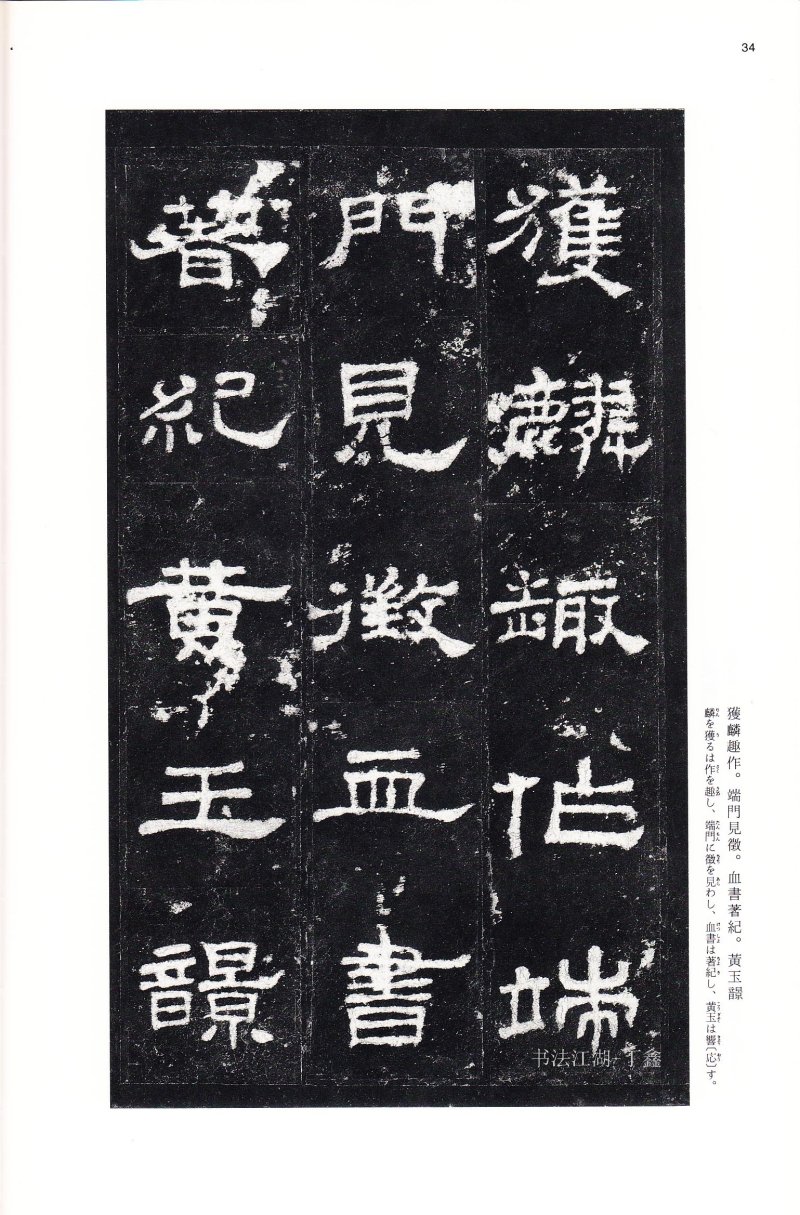 34
獲麟趣作端
門見徵血書
著紀黃玉韻
獲麟趣作。端門見徵。血書著紀。黃玉韻
麟を獲るは作を趣し、端門に徵を見わし、血書は著紀し、黃玉は響〔応〕す。
书法江湖 丁鑫